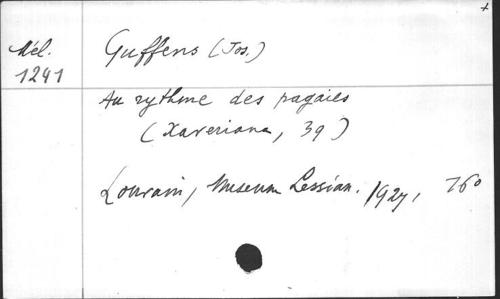 Mél.
1241
Guffens (Jos.)
Au rythme des pagaies
(Xaveriana, 39)
Louvain, Museum Lessian. 1927,